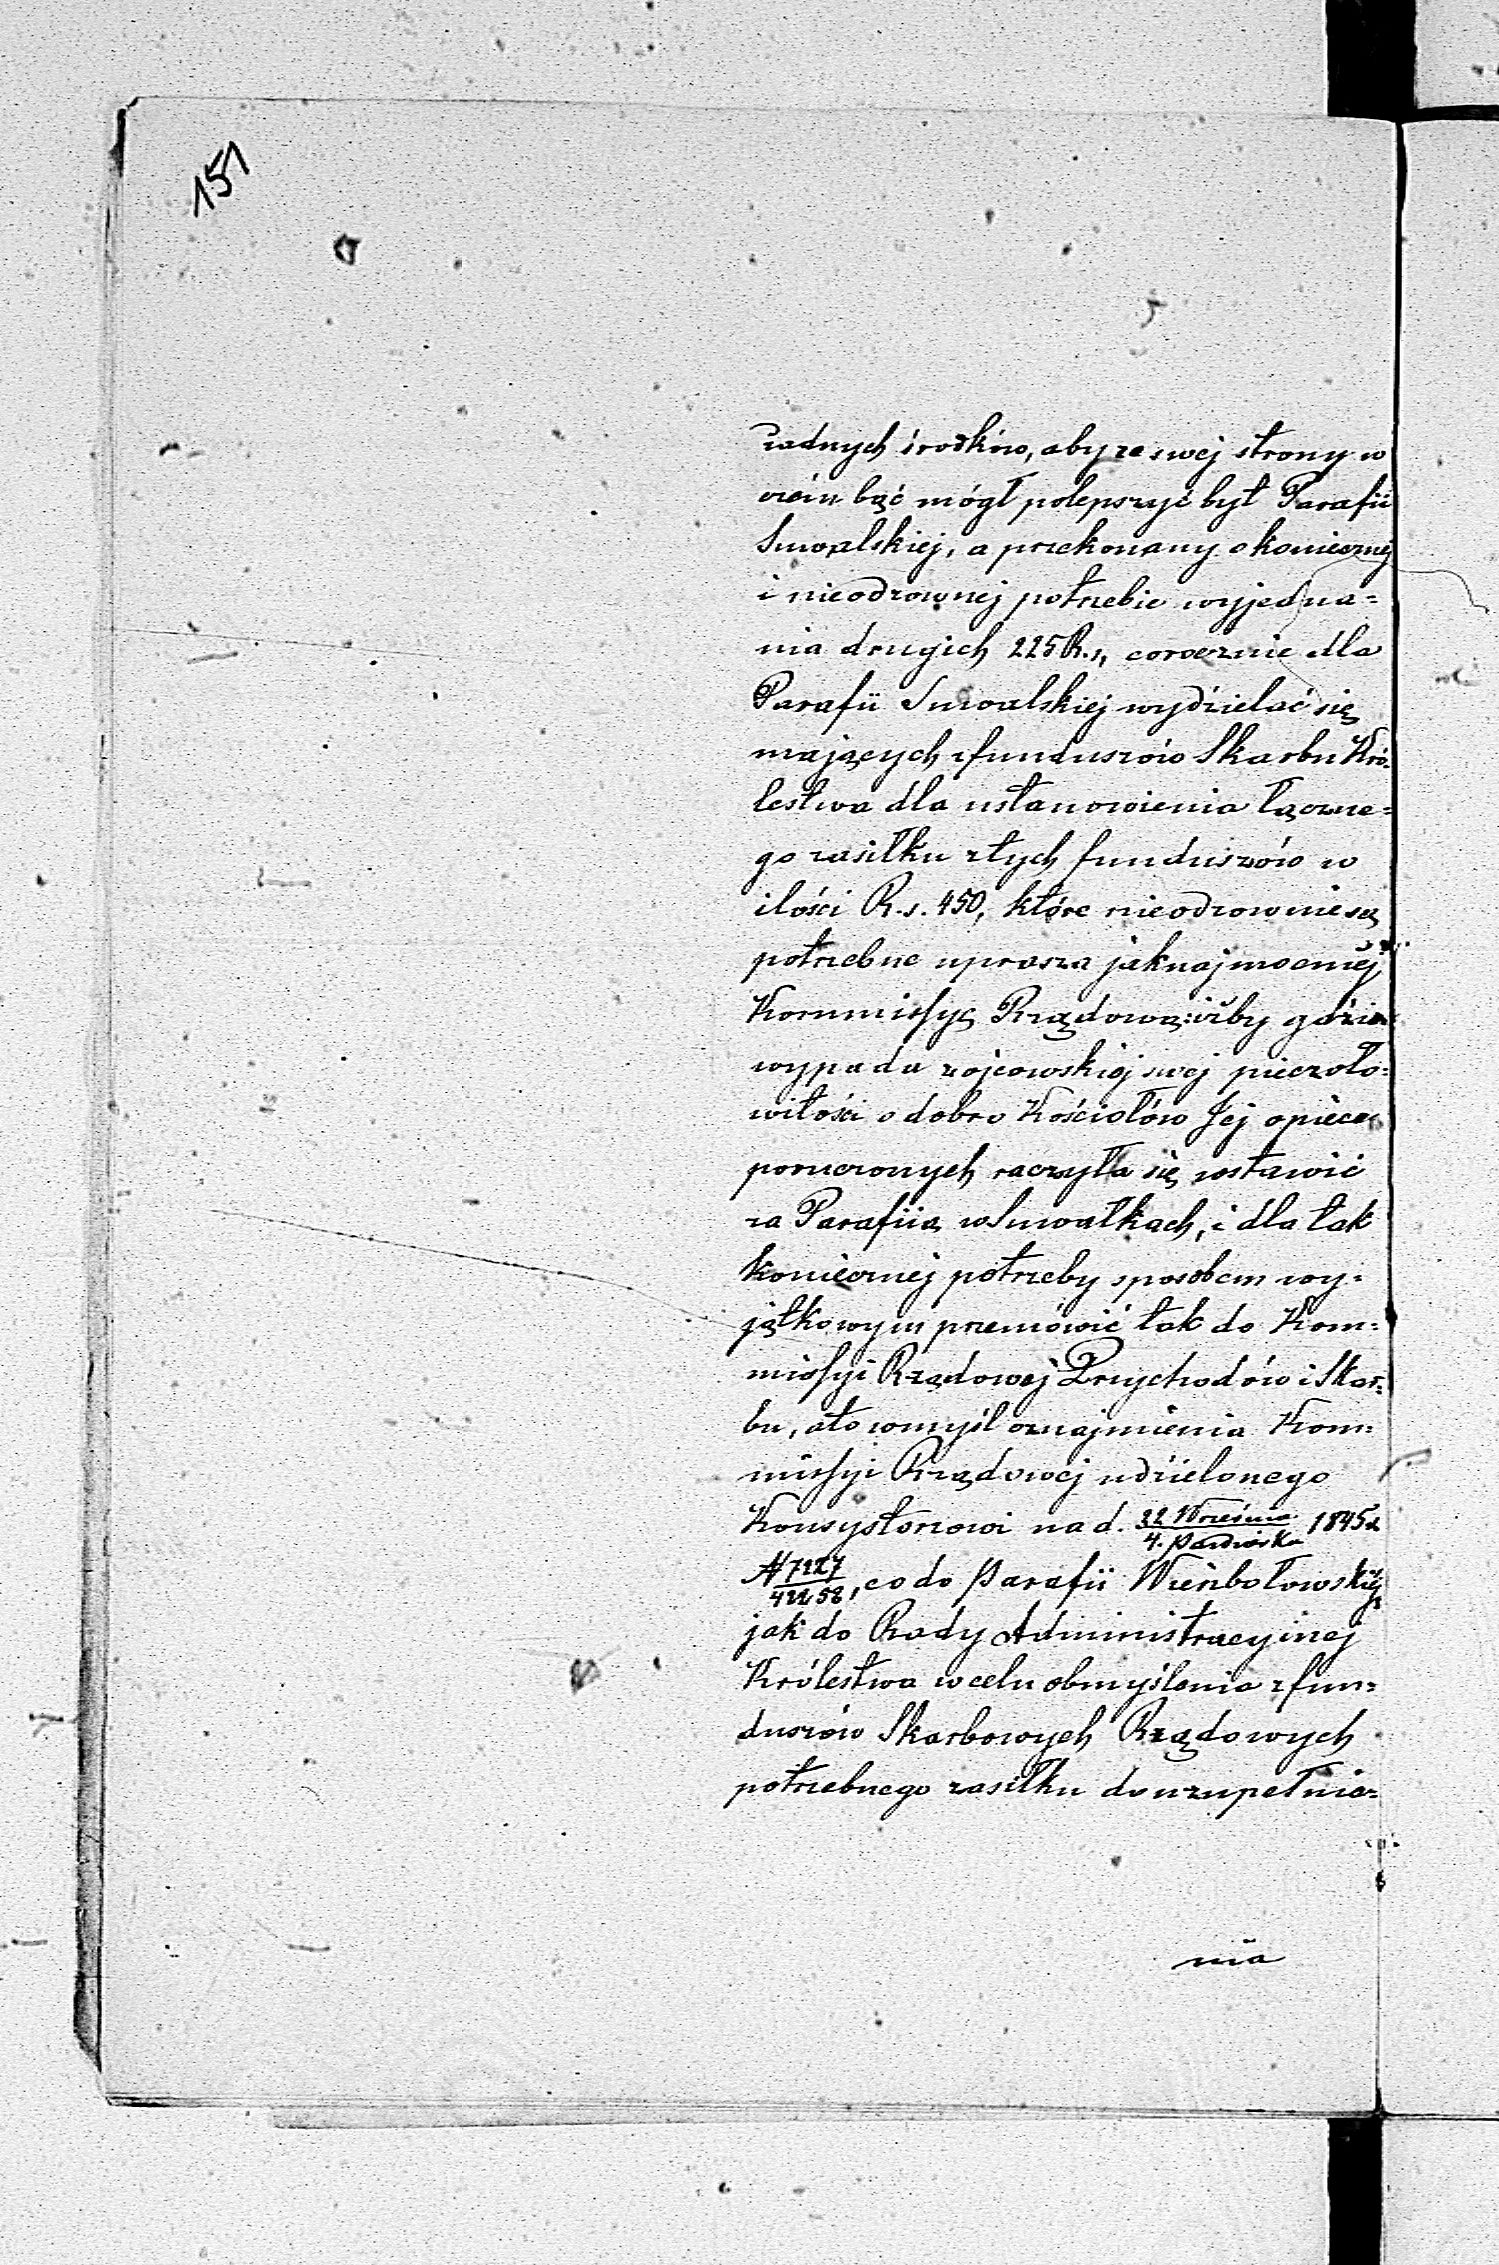 151
żadnych środków, aby ze swej strony w
czém bąć mógł polepszyć był Parafii
Suwalskiej, a przekonany o koniecznej
i nieodzownej potrzebie wyjedna=
nia drugich 225 R.s, corocznie dla
Parafii Suwalskiej wydzielać się
mających z funduszów Skarbu Kró=
lestwa dla ustanowienia łączne=
go zasiłku z tych funduszów w
ilości R.s. 450, które nieodzownie są
potrzebne uprasza jaknajmocniéj
Kommissyą Rządową: iżby gdzie
wypada z ojcowskiej swej pieczoło=
witości o dobro Kościołów Jej opiece
poruczonych raczyła się wstawić
za Parafiią w Suwałkach, i dla tak
koniecznej potrzeby sposobem wy=
jątkowym przemówić tak do Kom=
missyi Rządowej Przychodów i Skar=
bu, a to w myśl oznajmienia Kom=
missyi Rządowej udzielonego
Konsystorzowi na d. 22 Września / 4. Paździer̃ka 1845 r.
N 7127/42258, co do Parafii Wierzbołowskiéj,
jak do Rady Administracyinej
Królestwa w celu obmyślenia z fun=
duszów Skarbowych Rządowych
potrzebnego zasiłku do uzupełnie=
nia